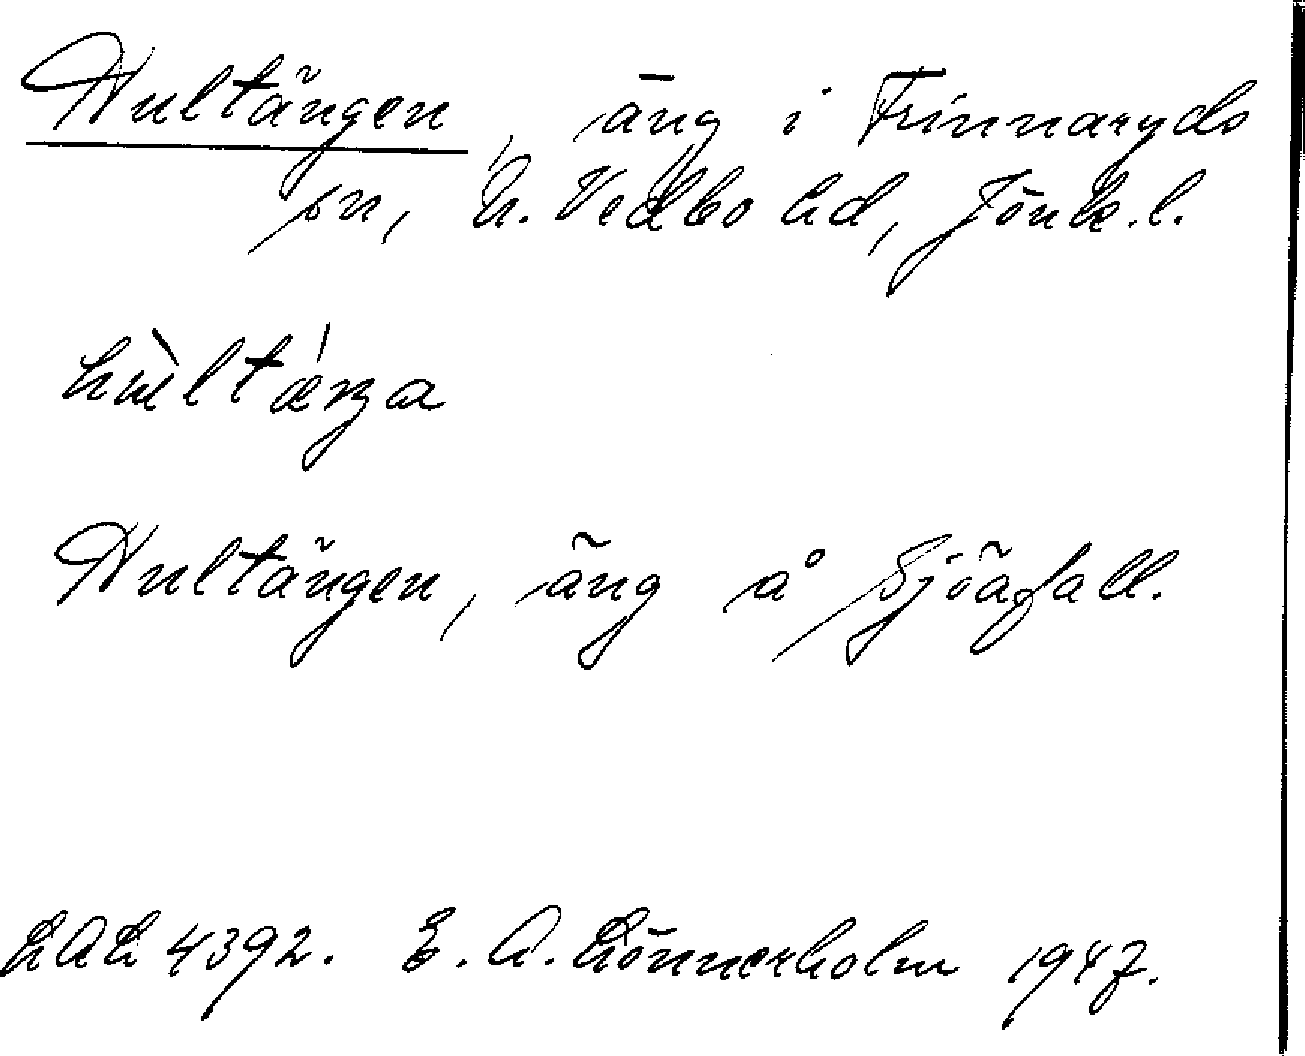 Hultängen, äng i Frinnaryds
sn, N. Vedbo hd, Jönk. l.
hùltǽŋa
Hultängen, äng å Sjöafall.
LAL 4392. E. A. Lönnerholm 1947.